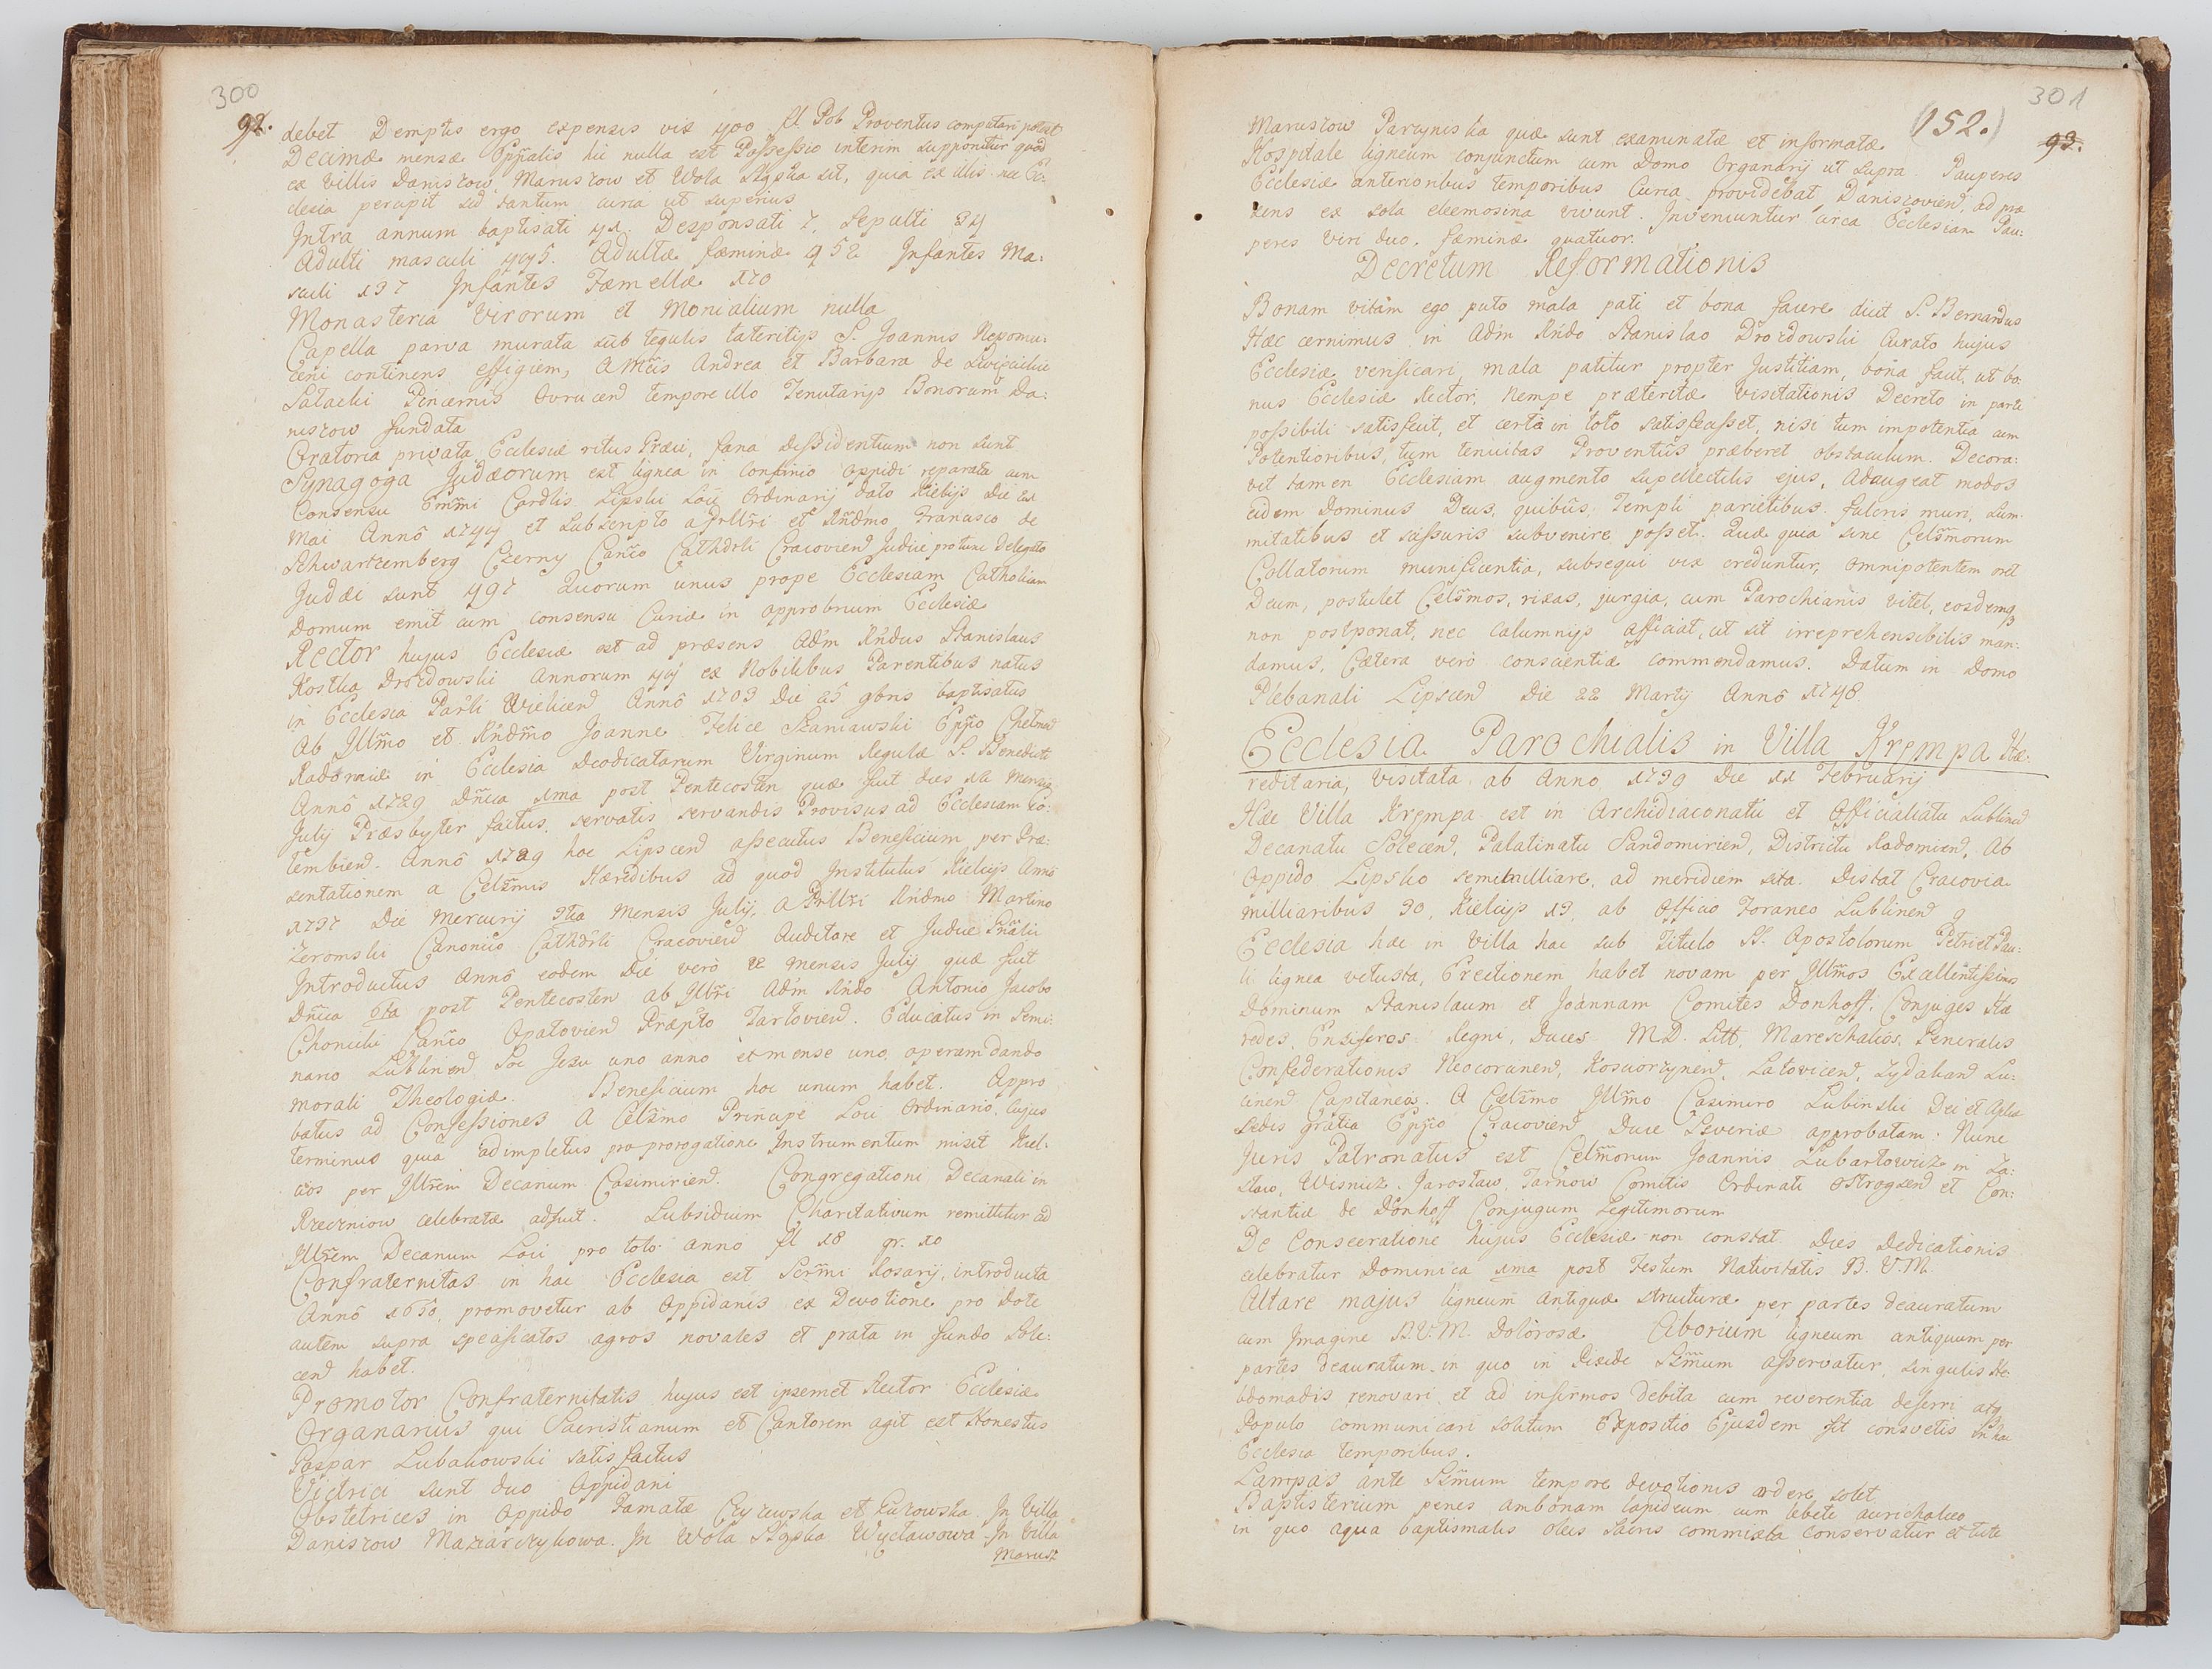 300
92. debet Demptis ergo expensis vix 400 fl Pol Proventus computari potest
Decimæ mensæ Eppalis hic nulla est Possessio interim supponitur quod
ex Villis Daniszow, Maruszow et Wola Solecka sit, quia ex illis nec Ec:
clesia percipit sed tantum curia ut superius
Intra annum baptisati 41. Desponsati 7. Sepulti 34
Adulti masculi 445. Adultæ fæminæ 452 Infantes Ma:
sculi 137 Infantes Fæmellæ 170
Monasteria Virorum et Monialium nulla
Capella parva murata sub tegulis lateritijs S. Joannis Nepomu:
ceni continens effigiem, a Mcis Andrea et Barbara de
Pincernis Ovrucen tempore illo Tenutarijs Bonorum Da:
niszow fundata
Oratoria privata Ecclesiæ ritus Græci, fana dissidentium non sunt
Synagoga Judæorum est lignea in Confinio oppidi reparata cum
Consensu Emmi Cardlis Lipski Loci Ordinarij dato Kielcijs Die 21
Mai Anno 1744 et Subscripto a Prllri et Rndmo Francisco de
Schwartzemberg Czerny Canco Cathdrli Cracovien Judice pro tunc Delegato
Judæi sunt 497 Quorum unus prope Ecclesiam Catholicam
domum emit cum consensu Curiæ in opprobrium Ecclesiæ
Rector hujus Ecclesiæ est ad præsens Adm Rndus Stanislaus
Kostka Drozdowski Annorum 44 ex Nobilibus Parentibus natus
in Ecclesia Parli Wielicen Anno 1703 Die 25 9bris baptisatus
Ab Illmo et Rndmo Joanne Felice Szaniawski Eppo Chelmen
Radomiæ in Ecclesia Deodicatarum Virginum Regulæ S. Benedicti
Anno 1729 Dnica 1ma post Pentecosten quæ fuit dies 12 Mensis
Julij Præsbyter factus, servatis servandis Provisus ad Ecclesiam Co:
tembien. Anno 1729 hoc Lipscen assecutus Beneficium per Præ:
sentationem a Celsmis Hæredibus ad quod Institutus Kielcijs Anno
1737 Die Mercurij 3tia Mensis Julij, a Prllri Rndmo Martino
Zeromski Canonico Cathdrli Cracovien Auditore et Judice Gnali
Introductus Anno eodem Die vero 21 mensis Julij quæ fuit
Dnica 6ta post Pentecosten ab Illri Adm Rndo Antonio Jacobo
Chonicki Canco Opatovien Præpto Tarlovien. Educatus in Semi:
nario Lublinen Soc Jesu uno anno et mense uno, operam dando
morali Theologiæ. Beneficium hoc unum habet. Appro
batus ad Confessiones a Celsmo Principe Loci Ordinario, cujus
terminus quia adimpletus pro prorogatione Instrumentum misit Kiel:
cios per Illrem Decanum Casimirien. Congregationi Decanali in
Rzeczniow celebratæ adfuit. Subsidium Charitativum remittitur ad
Illrem Decanum Loci pro toto anno fl 18 gr. 10
Confraternitas in hac Ecclesia est Scrmi Rosarij, introducta
Anno 1650, promovetur ab Oppidanis ex Devotione pro dote
autem supra specificatos agros novales et prata in fundo Sole:
cen habet.
Promotor Confraternitatis hujus est ipsemet Rector Ecclesiæ
Organarius qui Sacristianum et Cantorem agit est Honestus
Gaspar Lubakowski satisfactus
Victrici sunt duo Oppidani
Obstetrices in Oppido Famatæ Czyzewska et In Villa
Daniszow Maziarczykowa. In Wola Solecka Wycławowa In Villa
Marusz
301
(152.)
93.
Maruszow Parzyniska quæ sunt examinatæ et informatæ
Hospitale ligneum conjunctum cum Domo Organarij ut supra. Pauperes
Ecclesiæ anterioribus temporibus Curia providebat Daniszovien, ad præ
sens ex sola eleemosina vivunt. Inveniuntur circa Ecclesiam Pau:
peres Viri duo, fæminæ quatuor.
Decretum Reformationis
Bonam vitam ego puto mala pati et bona facere dicit S. Bernardus
Hæc cernimus in Adm Rndo Stanislao Drozdowski Curato hujus
Ecclesiæ verificari, mala patitur propter Justitiam, bona facit, ut bo:
nus Ecclesiæ Rector, Nempe præteritæ Visitationis Decreto in parte
possibili satisfecit, et certa in toto satisfecisset, nisi tum impotentia cum
Potentioribus, tum tenuitas Proventus præberet obstaculum. Decora:
vit tamen Ecclesiam augmento supellectilis ejus, Adaugeat modos
eidem Dominus Deus, quibus, Templi parietibus fulcris muri, sum:
mitatibus et scissuris subvenire posset. Quæ quia sine Celsmorum
Collatorum munificentia, subsequi vix creduntur, omnipotentem oret
Deum, postulet Celsmos, rixas, jurgia, cum Parochianis vitet, eosdemq
non postponat, nec calumnijs afficiat, ut sit irreprehensibilis man:
damus, Cætera vero conscientiæ commendamus. Datum in Domo
Plebanali Lipscen Die 22 Martij Anno 1748
Ecclesia Parochialis in Villa Krempa Hæ:
reditaria, visitata ab Anno 1739 Die 11 Februarij
Hæc Villa Krempa est in Archidiaconatu et Officialiatu Lublinen
Decanatu Solecen, Palatinatu Sandomirien, Districtu Radomien, Ab
Oppido Lipsko semimilliare, ad meridiem sita. Distat Cracovia
milliaribus 30, Kielcijs 13, ab Officio Foraneo Lublinen 9
Ecclesia hæc in Villa hac sub Titulo SS. Apostolorum Petri et Pau:
li lignea vetusta, Erectionem habet novam per Illmos Excellentissimos
Dominum Stanislaum et Joannam Comites Donhoff, Conjuges Hæ
redes, Ensiferos Regni, Duces M.D. Litt, Mareschalios, Generalis
Confederationis Neocorunen, Koscierzynen, Latovicen, Zydalian Lu:
cinen Capitaneos. A Celsmo Illmo Casimiro Lubinski Dei et Aplca
Sedis gratia Eppo Cracovien Duce Severiæ approbatam: Nunc
Juris Patronatus est Celsmorum Joannis Lubartowicz in Za:
slaw, Wisnicz, Jaroslaw, Tarnow Comitis Ordinati Ostrogsen et Con:
stantiæ de Donhoff Conjugum Legitimorum
De Consecratione hujus Ecclesiæ non constat. Dies Dedicationis
celebratur Dominica 1ma post Festum Nativitatis B.V.M.
Altare majus ligneum antiquæ structuræ per partes deauratum
cum Imagine B.V.M. Dolorosæ Ciborium ligneum antiquum per
partes deauratum in quo in Pixide Ssmum asservatur, singulis He
bdomadis renovari et ad infirmos debita cum reverentia deferri atq
Populo communicari solitum Expositio Ejusdem fit consvetis in hac
Ecclesia temporibus.
Lampas ante Ssmum tempore devotionis ardere solet
Baptisterium penes ambonam lapideum cum lebete aurichalceo
in quo aqua baptismalis oleis sacris commixta conservatur et tute